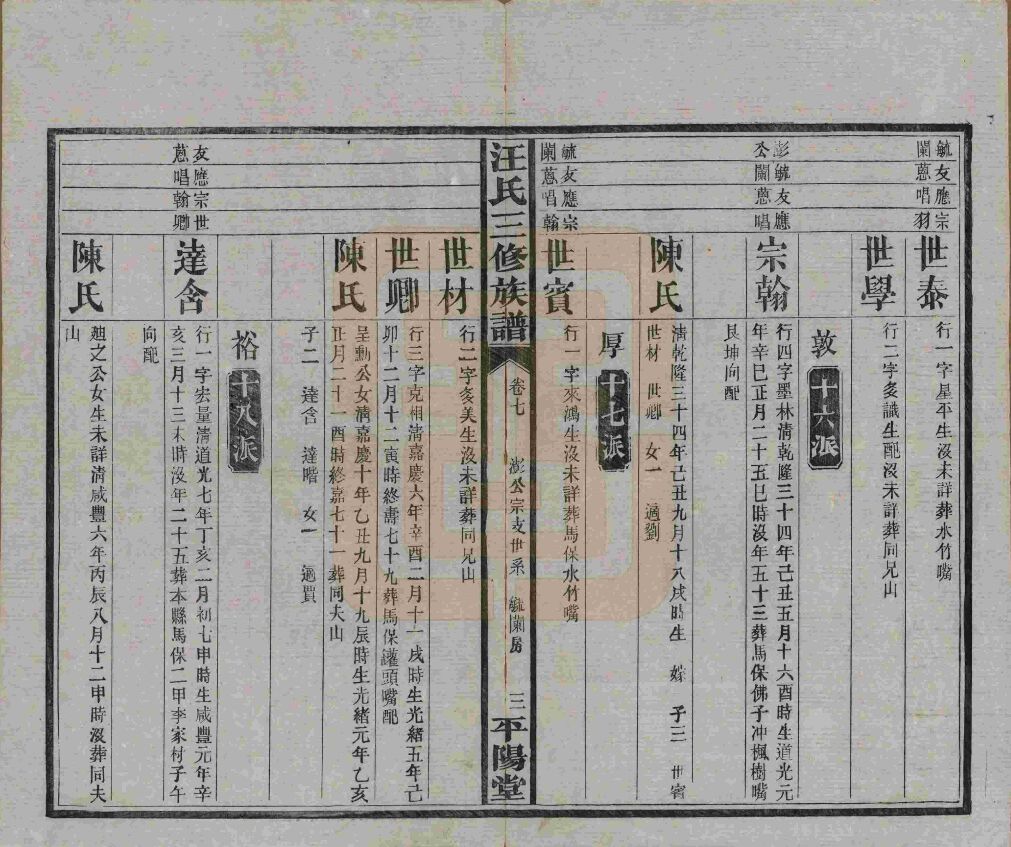 毓友應宗
闌蔥唱羽
世泰
行一字星平生沒未詳葬水竹嘴
世學
行二字多識生配沒未詳葬同兄山
敦
十六派
彭毓友應
公闌蔥唱
宗翰
行四字墨林淸乾隆三十四年己丑五月十六酉時生道光元
年辛巳正月二十五巳時沒年五十三葬馬保佛子冲楓樹嘴
艮坤向配
陳氏
淸乾隆三十四年己丑九月十八戌時生 嫁 子三 世賓
世材 世卿 女一 適劉
厚
十七派
毓友應宗
闌蔥唱翰
世賓
行一字來鴻生沒未詳葬馬保水竹嘴
汪氏三修族譜
卷七
澎公宗支世系
毓闌房
三
平陽堂
世材
行二字多美生沒未詳葬同兄山
世卿
行三字克相淸嘉慶六年辛酉二月十一戌時生光緒五年己
卯十二月十二寅時終壽七十九葬馬保謹頭嘴配
陳氏
呈勳公女淸嘉慶十年乙丑九月十九辰時生光緒元年乙亥
正月二十一酉時終嘉七十一葬同夫山
子二 達含 達階 女一 適賈
裕
十八派
友應宗世
蔥唱翰卿
達含
行一字宏量淸道光七年丁亥二月初七申時生咸豐元年辛
亥三月十三未時沒年二十五葬本縣馬保二甲李家村子午
向配
陳氏
廸之公女生未詳淸咸豐六年丙辰八月十二申時沒葬同夫
山